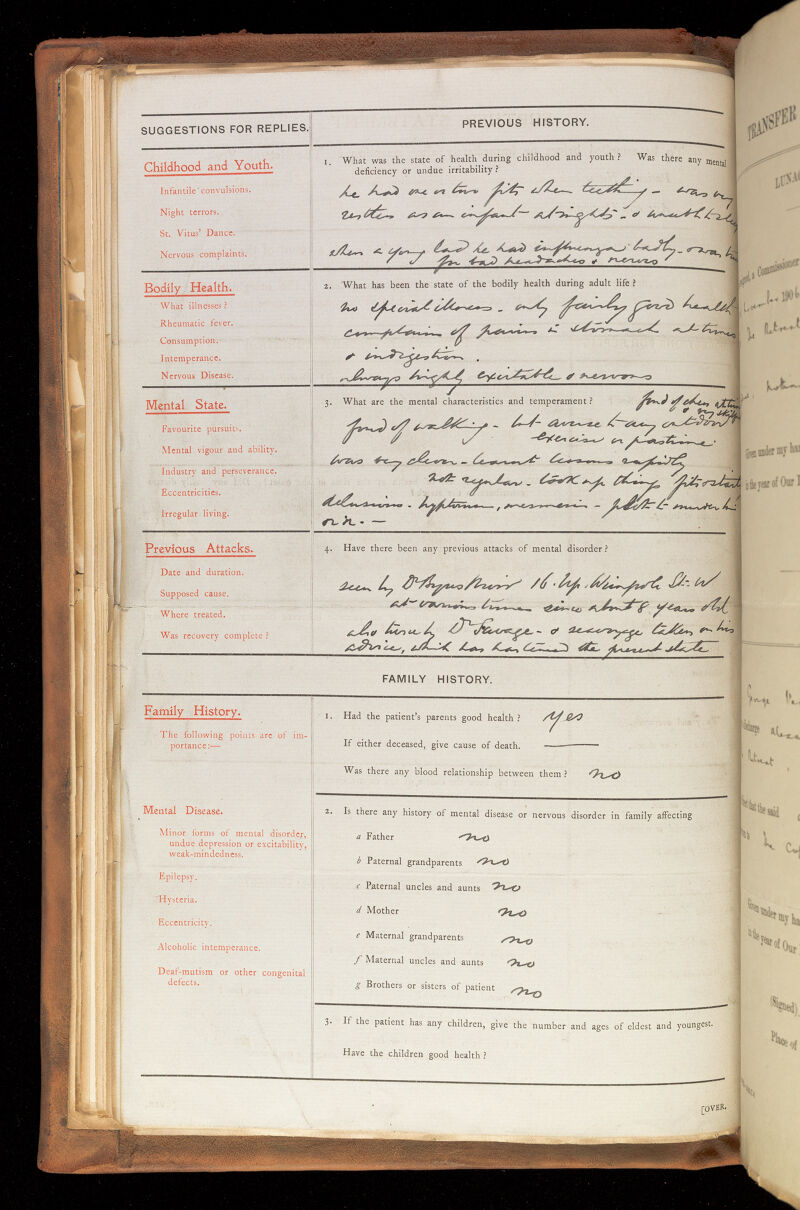 SUGGESTIONS FOR REPLIES.
PREVIOUS HISTORY.
Childhood and Youth.
Infantile convulsions.
Night terrors.
St. Vitus' Dance.
Nervous complaints.
1. What was the state of health during childhood and youth? Was there any mental
deficiency or undue irritability?
he had one or two fits when teething - was very
restless as an infant at nights - &
when a young lad he had influenza badly - & was
for bad headaches & nerves
Bodily Health.
What illnesses?
Rheumatic fever.
Consumption.
Intemperance.
Nervous Disease.
2. What has been the state of the bodily health during adult life?
no special illness - only fairly good health
complains of pains in stomach at times
& indigestion.
always highly excitable & nervous
Mental State.
Favourite pursuits.
Mental vigour and ability.
Industry and perseverance.
Eccentricities.
Irregular living.
3. What are the mental characteristics and temperament?
fond of chess at times
& very skilful
fond of walking - but averse to any outdoor
exercise or pastime
was very clever - learnt lessons rapidly
not regular - took up things fits & starts
delusions - hypnotism, mesmerism - plot to murder him
Previous Attacks.
Date and duration.
Supposed cause.
Where treated.
Was recovery complete?
4. Have there been any previous attacks of mental disorder?
seen by Dr 16 Up. Wimpole St. W
at various times since about 8 years old
also twice by Dr Savage - & sea voyage taken on his
advice, which has hastened the present state
FAMILY HISTORY.
Family History.
The following points are of im-
portance:—
1. Had the patient's parents good health? Yes
If either deceased, give cause of death. —
Was there any blood relationship between them? no
Mental Disease.
Minor forms of mental disorder,
undue depression or excitability,
weak-mindedness.
Epilepsy.
Hysteria.
Eccentricity.
Alcoholic intemperance.
Deaf-mutism or other congenital
defects.
2. Is there any history of mental disease or nervous disorder in family affecting
a Father no
b Paternal grandparents no
c Paternal uncles and aunts no
d Mother no
e Maternal grandparents no
f Maternal uncles and aunts no
g Brothers or sisters of patient no
3. If the patient has any children, give the number and ages of eldest and youngest.
Have the children good health?
[OVER.
TRANSFER
LUNA
a Commissioner
190
Given under my
in the year of Our
that the said
Given under my
in the year of Our
(Signed)
Place of